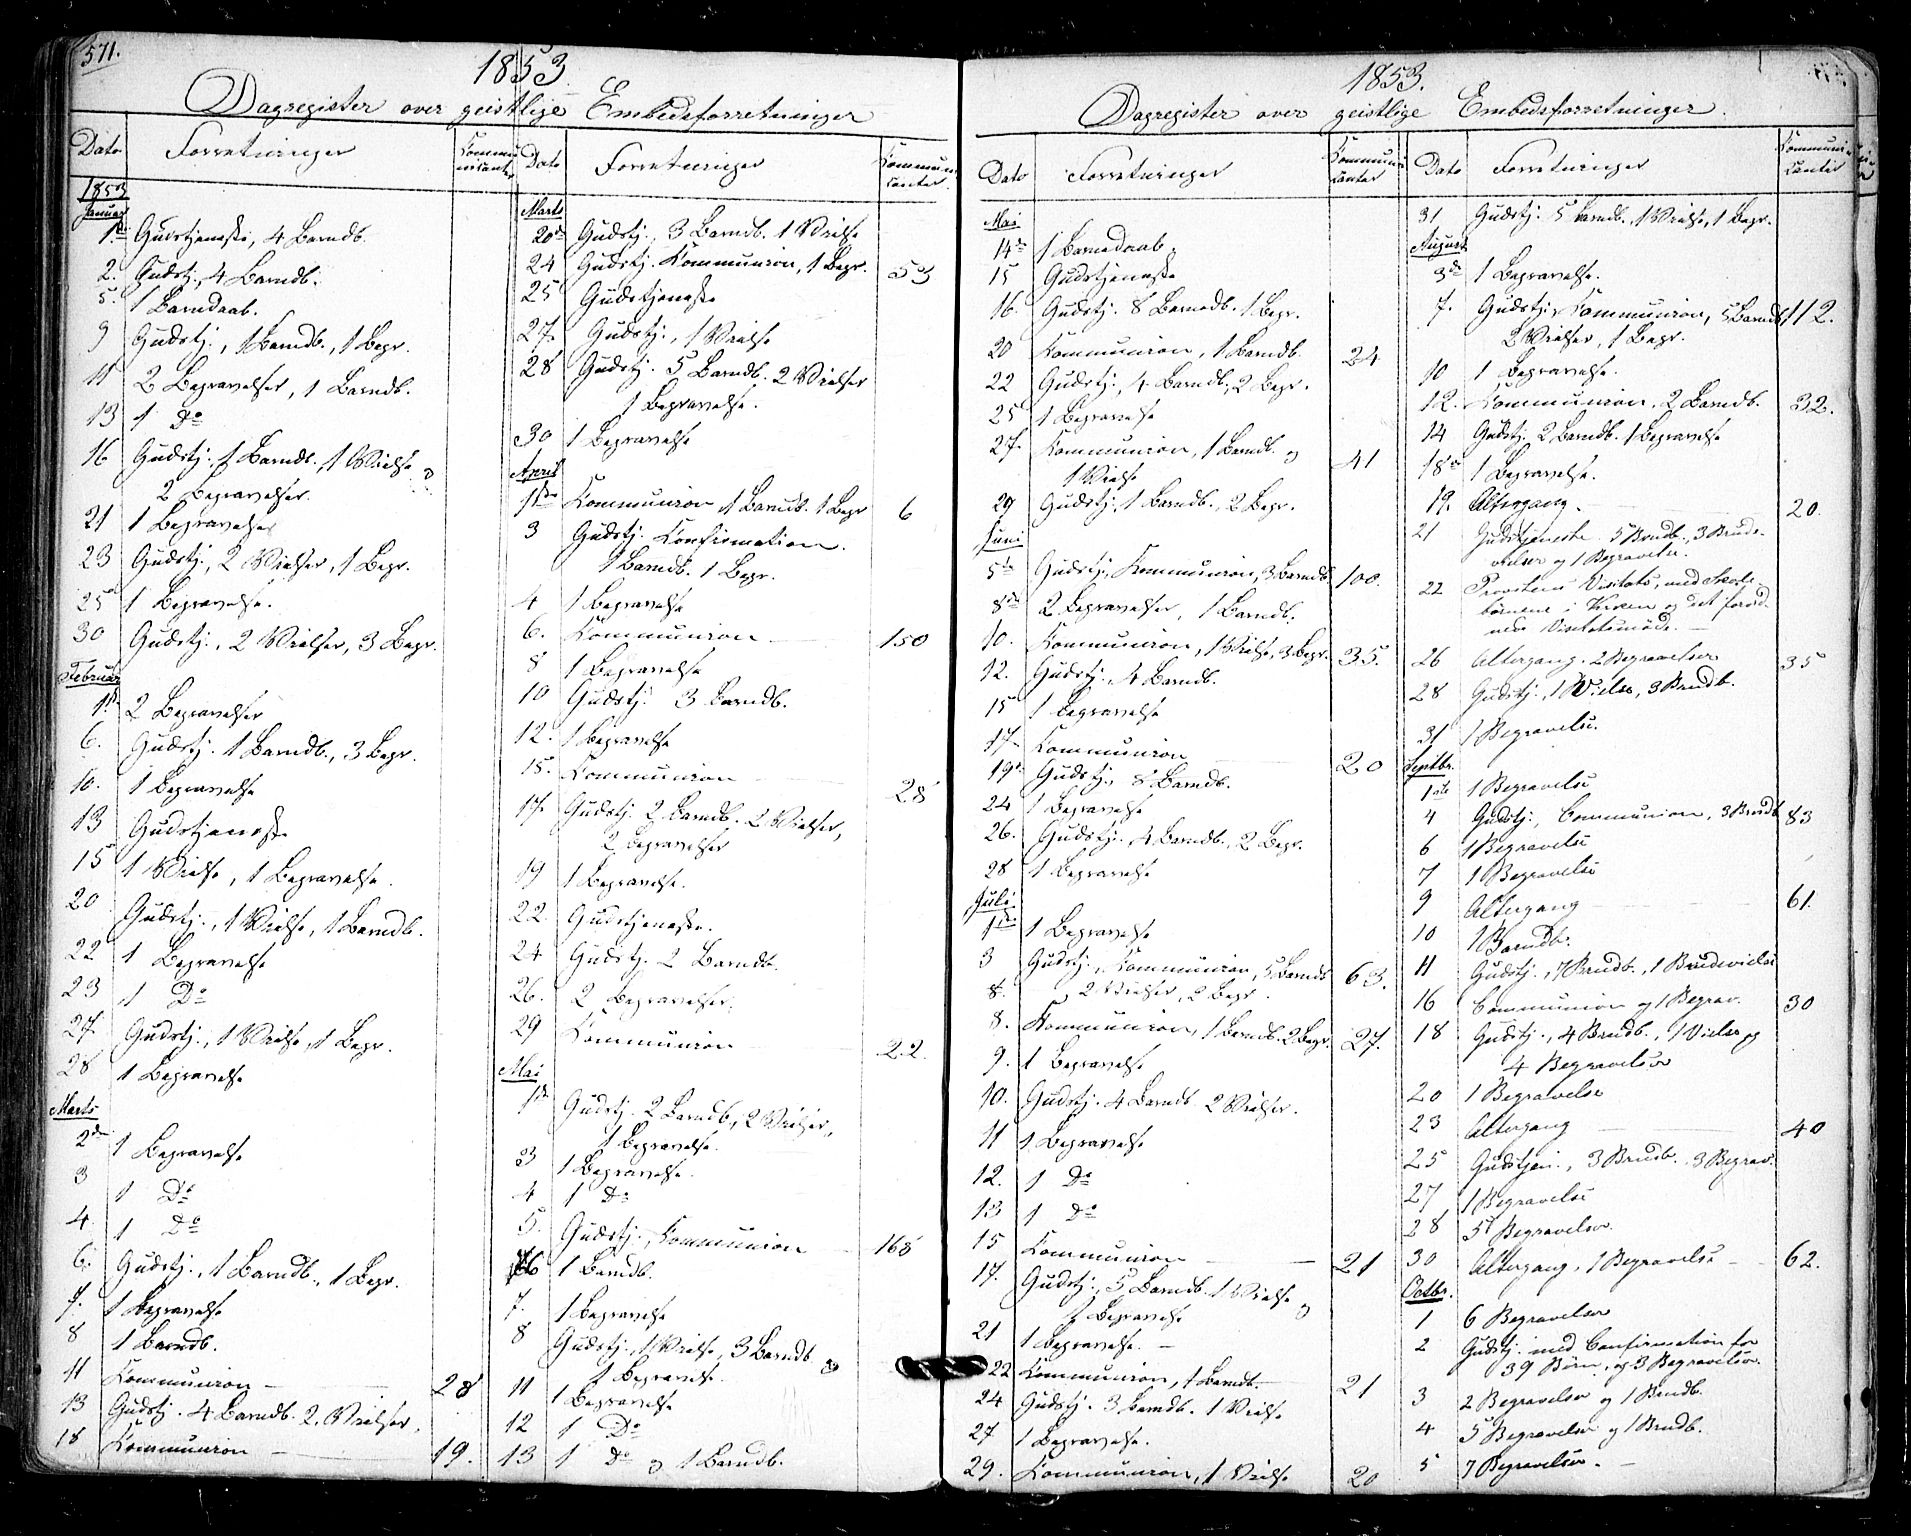 571.
1853.
Dagregister over geistlige Embedsforretninger
Dato Forretninger Kommunicanter Dato Forretninger Kommunicanter
1853
Januar
1ste Gudstjeneste, 4 Barndb.
2. Gudstj., 4 Barndb.
5. 1 Barndaab.
9 Gudstj., 1 Barndb., 1 Begr.
11 2 Begravelser, 1 Barndb.
13 1 Do
16 Gudstj., 1 Barndb., 1 Vielse og
2 Begravelser.
21 1 Begravelse
23 Gudstj., 2 Vielser, 1 Begr.
25 1 Begravelse.
30 Gudstj., 2 Vielser, 3 Begr.
Februar
1ste 2 Begravelser
6. Gudstj. 1 Barndb., 3 Begr.
10. 1 Begravelse
13 Gudstjeneste
15 1 Vielse, 1 Begravelse.
20 Gudstj., 1 Vielse, 1 Barndb.
22 1 Begravelse
23 1 Do
27. Gudstj., 1 Vielse, 1 Begr.
28 1 Begravelse
Marts
2den 1 Begravelse
3 1 Do
4. 1 Do
6. Gudstj., 1 Barndb., 1 Begr.
7. 1 Begravelse
8 1 Barndb.
11 Kommunion 28
13 Gudstj. 4 Barndb. 2 Vielser.
18 Kommunion 19.
Marts
20de Gudstj., 3 Barndb. 1 Vielse
24 Gudstj. Kommunion, 1 Begr. 53
25 Gudstjeneste
27. Gudstj., 1 Vielse
28 Gudstj. 5 Barndb. 2 Vielser
1 Begravelse.
30 1 Begravelse
April
1ste Kommunion 1 Barndb. 1 Begr 6
3 Gudstj. Konfirmation.
1 Barndb. 1 Begr.
4 1 Begravelse
6. Kommunion 150
8 1 Begravelse
10 Gudstj. 3 Barndb.
12. 1 Begravelse
15. Kommunion 28
17. Gudstj. 2 Barndb. 2 Vielser,
2 Begravelser
19 1 Begravelse.
22. Gudstjeneste.
24 Gudstj. 2 Barndb.
26. 2 Begravelser.
29 Kommunion 22.
Mai
1ste Gudstj. 2 Barndb., 2 Vielser,
1 Begravelse.
3 1 Begravelse.
4 1 Do
5. Gudstj., Kommunion 168
6 1 Barndb.
7. 1 Begravelse
8 Gudstj., 1 Vielse, 3 Barndb og
1 Begravelse.
11 1 Begravelse
12 1 Do
13 1 Do og 1 Barndb.
1853.
Dagregister over geistlige Embedsforretninger.
Dato Forretninger Kommunicanter Dato Forretninger Kommunicanter
Mai
14de 1 Barndaab.
15 Gudstjeneste
16. Gudstj. 8 Barndb. 1 Begr.
20 Kommunion, 1 Barndb. 24
22 Gudstj., 4 Barndb., 2 Begr.
25 1 Begravelse
27. Kommunion, 1 Barndb. og 41
1 Vielse
29 Gudstj. 1 Barndb. 2 Begr.
Juni
5te Gudstj., Kommunion, 3 Barndb 100.
8de 2 Begravelser, 1 Barndb.
10. Kommunion, 1 Vielse, 3 Begr. 35.
12. Gudstj., 1 Barndb.
15 1 Begravelse
17. Kommunion 20
19de Gudstj., 8 Barndb.
24 1 Begravelse
26. Gudstj. 4 Barndb., 2 Begr.
28 1 Begravelse
Juli
1ste 1 Begravelse
3 Gudstj., Kommunion, 5 Barndb 63.
8. og 2 Vielser, 2 Begr.
8. Kommunion, 1 Barndb. 2 Begr. 27.
9. 1 Begravelse
10. Gudstj. 4 Barndb. 2 Vielser.
11 1 Begravelse
12. 1 Do
13 1 Do
15 Kommunion 21
17. Gudstj., 5 Barndb. 1 Vielse og
1 Begravelse
21 1 Begravelse.
22 Kommunion, 1 Barndb. 21
24 Gudstj. 3 Barndb. 1 Vielse
27 1 Begravelse.
29. Kommunion, 1 Vielse 20
31 Gudstj. 5 Barndb., 1 Vielse, 1 Begr.
August
3de 1 Begravelse.
7. Gudstj., Kommunion, 5 Barndb 112.
2 Vielser, 1 Begr.
10 1 Begravelse.
12. Kommunion, 2 Barndb. 32.
14 Gudstj. 2 Barndb. 1 Begravelse
18de 1 Begravelse.
19. Altergang. 20.
21 Gudstjeneste. 5 Brndb., 3 Brude-
vielser og 1 Begravelse.
22 Provstens Visitats, med Skole-
børnene i Kirken og det forord-
nede Visitatsmøde.
26 Altergang. 2 Begravelser 35
28 Gudstj., 1 Vielse, 3 Brndb.
31 1 Begravelse.
Septbr.
1ste 1 Begravelse
4 Gudstj., Communion, 3 Brndb 83
6 1 Begravelse
7 1 Begravelse
9 Altergang 61.
10 1 Barndb.
11 Gudstj., 7 Brndb., 1 Brudevielse
16 Communion og 1 Begrav. 30
18 Gudstj., 4 Brndb., 1 Vielse og
4 Begravelser
20 1 Begravelse
23 Altergang 40
25 Gudstjen., 3 Brndb., 3 Begrav.
27 1 Begravelse
28 5 Begravelser.
30 Altergang, 1 Begravelse 62.
Octbr.
1 6 Begravelser
2 Gudstj. med Confirmation for
39 Børn, og 3 Begravelser.
3 2 Begravelser og 1 Brndb.
4 5 Begravelser og 1 Brndb.
5 7 Begravelser.